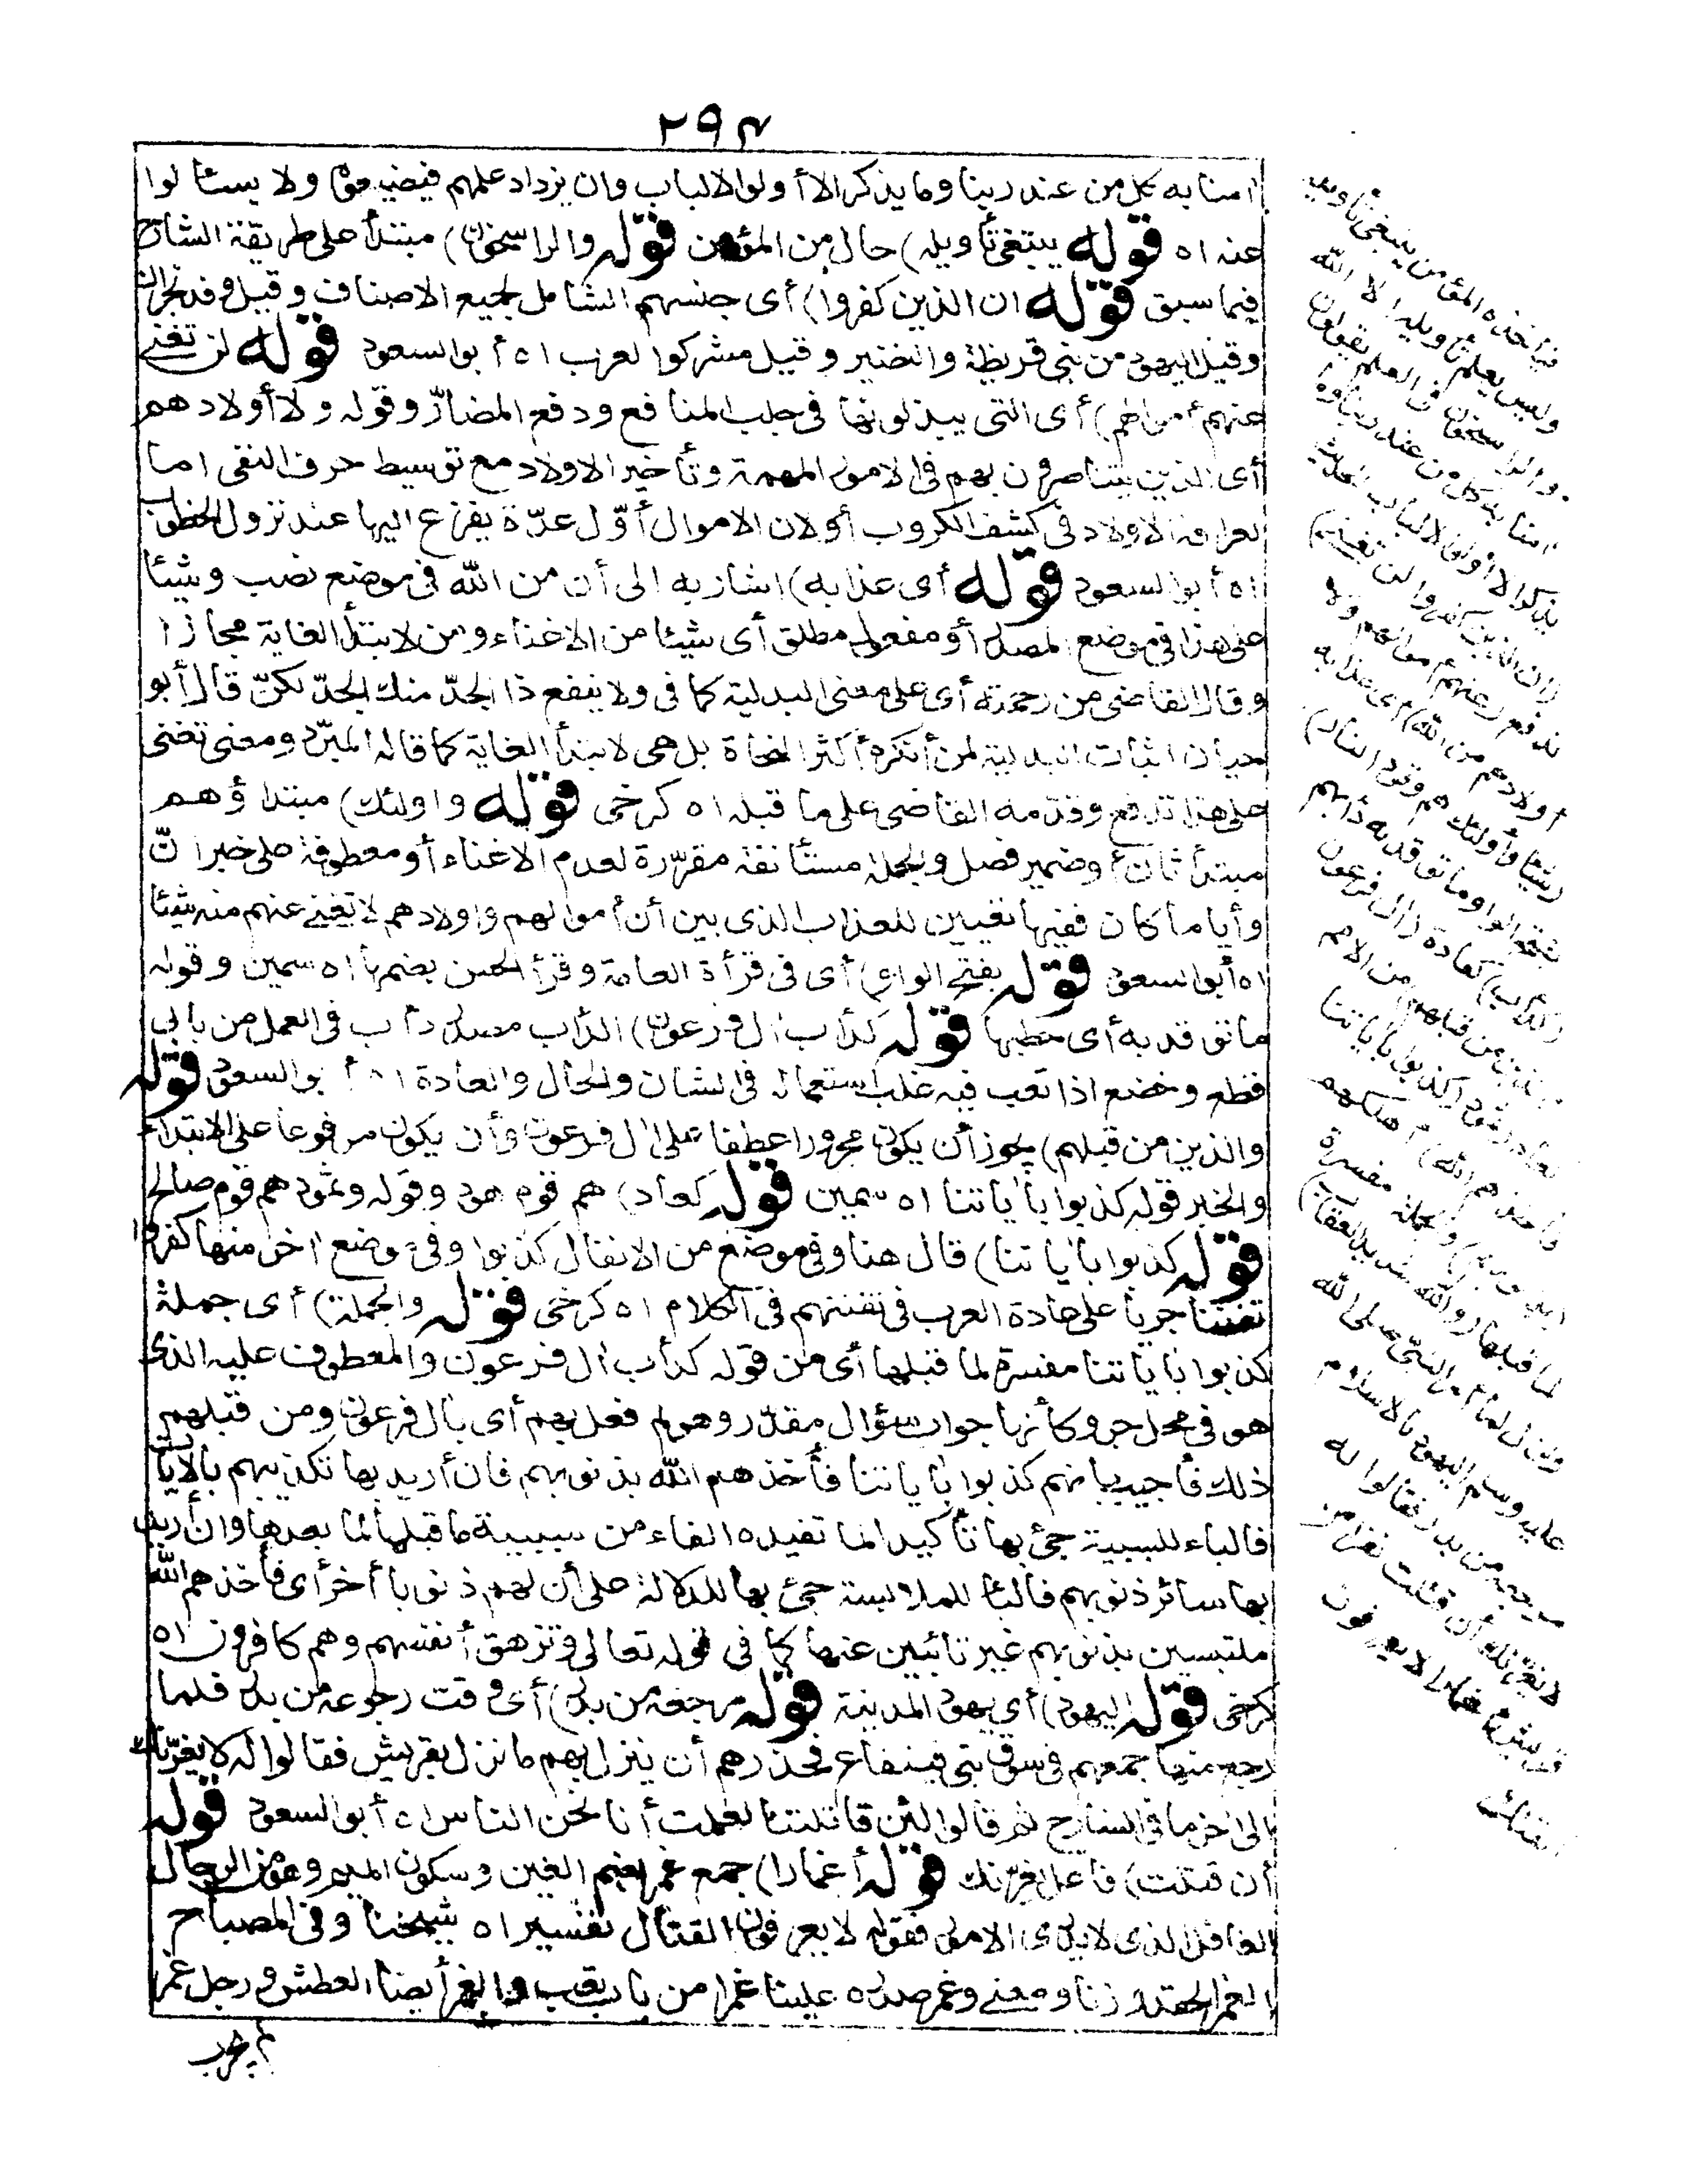 ٢٩٤
امنا به كل من عند ربنا وما يذكر الا أولوا الالباب وان يزداد علمهم فيضيعوه ولا يسئالوا
عنه اه قوله يبتغى تأويله) حال من المؤمن قوله والراسخون) مبتدأ على طريقة الشارح
فيما سبق قوله ان الذين كفروا) أى جنسهم الشامل لجميع الاصناف وقيل وفد نجران
وقيل اليهود من بنى قريظة والنضير وقيل مشركوا لعرب اه أبو السعود قوله لن تغنى
عنهم أموالهم) أى التى يبذلونها فى جلب المنافع ودفع المضارّ وقوله ولا أولادهم
أى الذين يتناصرون بهم فى الامور المهمة وتأخير الاولاد مع توسيط حرف النفى اما
لعراقة الاولاد فى كشف الكروب أو لان الاموال أوّل عدّة يفزع اليها عند نزول الخطوب
اه أبو السعود قوله أى عذابه) اشار به الى أن من الله فى موضع نصب وشيئا
على هذا فى موضع المصدر أو مفعول مطلق أى شيئا من الاغناء ومن لابتدأ الغاية مجازا
وقال القاضى من رحمته أى على معنى البدلية كما فى ولا ينفع ذا الجدّ منك الجدّ لكنّ قال أبو
حيان اثبات البدلية لمن أنكره أكثر النحاة بل هى لابتدأ الغاية كما قاله المبرّد ومعنى تغنى
على هذا تدفع وقدّمه القاضى على ما قبله اه كرخى قوله واولئك) مبتدا وهم
مبتدأ ثان أوضمير فصل والجملة مستأنفة مقرّرة لعدم الاغناء أو معطوفة على خبر انّ
وأيا ما كان ففيها تعيين للعذاب الذى بين أن أموالهم واولادهم لا تغنى عنهم منه شيئا
اه أبو السعود قوله بفتح الواو) أى فى قرأة العامة وقرأ الحسن بضمها اه سمين وقوله
ما توقد به أى حطبها قوله كدأب ال فرعون) الدأب مصدر دأب فى العمل من بابى
قطع وخضع اذا تعب فيه غلب استعماله فى الشان والحال والعادة اه أبو السعود قوله
والذين من قبلهم) يجوز أن يكون مجرورا عطفا على ال فرعون وأن يكون مرفوعا على الابتداء
والخبر قوله كذبوا باياتنا اه سمين قوله كعاد) هم قوم هود وقوله وثمود هم قوم صالح
قوله كذبوا باياتنا) قال هنا وفى موضع من الانفال كذبوا وفى موضع اخر منها كفروا
تفننا جريا على عادة العرب فى تفننهم فى الكلام اه كرخى قوله والجملة) أى جملة
كذبوا باياتنا مفسرة لما قبلها أى من قوله كدأب ال فرعون والمعطوف عليه الذى
هو فى محل جر وكأنها جواب سؤال مقدّر وهو لم فعل بهم أى بال فرعون ومن قبلهم
ذلك فأجيب بانهم كذبوا باياتنا فأخذهم الله بذنوبهم فان أريد بها تكذيبهم بالايات
فالباء للسببية جئ بها تأكيدا لما تفيده الفاء من سببية ما قبلها لما بعدها وان أريد
بها سائر ذنوبهم فالبا للملابسة جئ بها للدلالة على أن لهم ذنوبا أخر أى فأخذهم الله
ملتبسين بذنوبهم غير تائبين عنها كما فى قوله تعالى وتزهق أنفسهم وهم كافرون اه
كرخى قوله اليهود) أى يهود المدينة قوله مرجعه من بدر) أى وقت رجوعه من بدر فلما
رجع منها جمعهم فى سوق بنى قينقاع فحذرهم أن ينزل بهم ما نزل بقريش فقالوا له لا يغرّنك
الى اخر ما فى الشارح ثم قالوا لئن قاتلتنا لعلمت أنا نحن الناس اه أبو السعود قوله
أن قتلت) فاعل يغرّنك قوله أغمارا) جمع غمر بضم الغين وسكون الميم وهو من الرجال
الغافل الذى لا يدرى الامور فقوله لا يعرفون القتال تفسير اه شيخنا وفى المصباح
الغمر الحقد وزنا ومعنى وغمر صدره علينا غمرا من باب تعب والغمر أيضا العطش ورجل غمر
لم يجرب
فياخذه المؤمن يبتغى تأويله
وليس يعلم تأويله الا الله
والراسخون فى العلم يقولون
امنا به كل من عند ربنا وما
يذكر الا أولوا الالباب الحديث
(ان الذين كفروا لن تغنى)
تدفع (عنهم أموالهم ولا
أولادهم من الله) أى عذابه
(شيئا وأولئك هم وقود النار)
بفتح الواو ما توقد به دأبهم
(كدأب) كعادة (ال فرعون
والذين من قبلهم) من الامم
كعاد وثمود (كذبوا باياتنا
فأخذهم الله) أهلكهم
(بذنوبهم) والجملة مفسرة
لما قبلها (والله شديد العقاب)
ونزل لما أمر النبى صلى الله
عليه وسلم اليهود بالاسلام
مرجعه من بدر فقالوا له
لا يغرّنك أن قتلت نفرا من
قريش أغمارا لا يعرفون
القتال